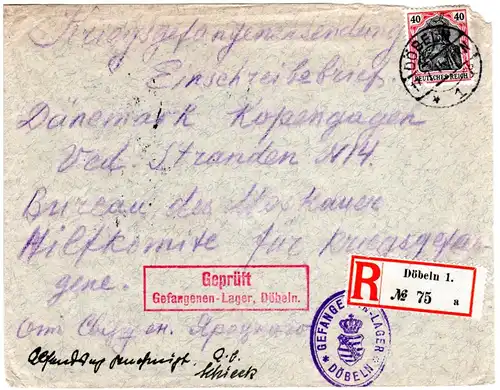 40 40
DEUTSCHES REICH
DÖBELN
* 1
Kriegsgefangenensendung
Einschreibebrief
Dänemark Kopengagen
Ved Stranden N14.
Bureau des Moskauer
Hilfkomite für Kriegsgefan-
gene.
Geprüft
Gefangenen-Lager, Döbeln.
R
Döbeln 1.
№ 75 a
GEFANGENEN-LAGER
* DÖBELN *
от
Schieck